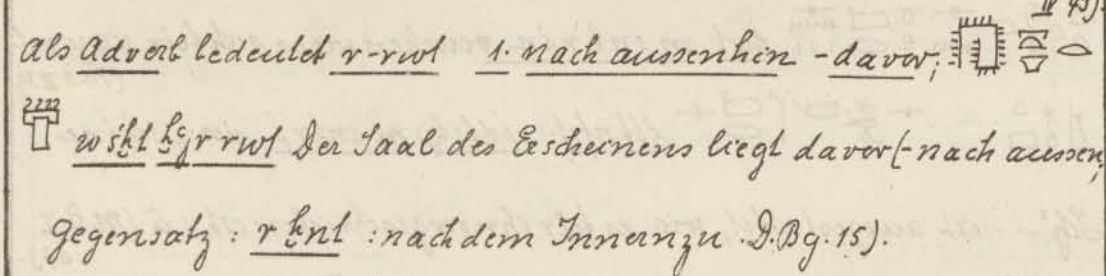 IV 43).
Als Adverb bedeutet r-rwt 1. nach aussenhin - davor;
wśḫt ḫꜥj r rwt Der Saal des Erscheinens liegt davor (- nach aussen;
Gegensatz : r ḫnt : nach dem Innern zu . D. Bg. 15).